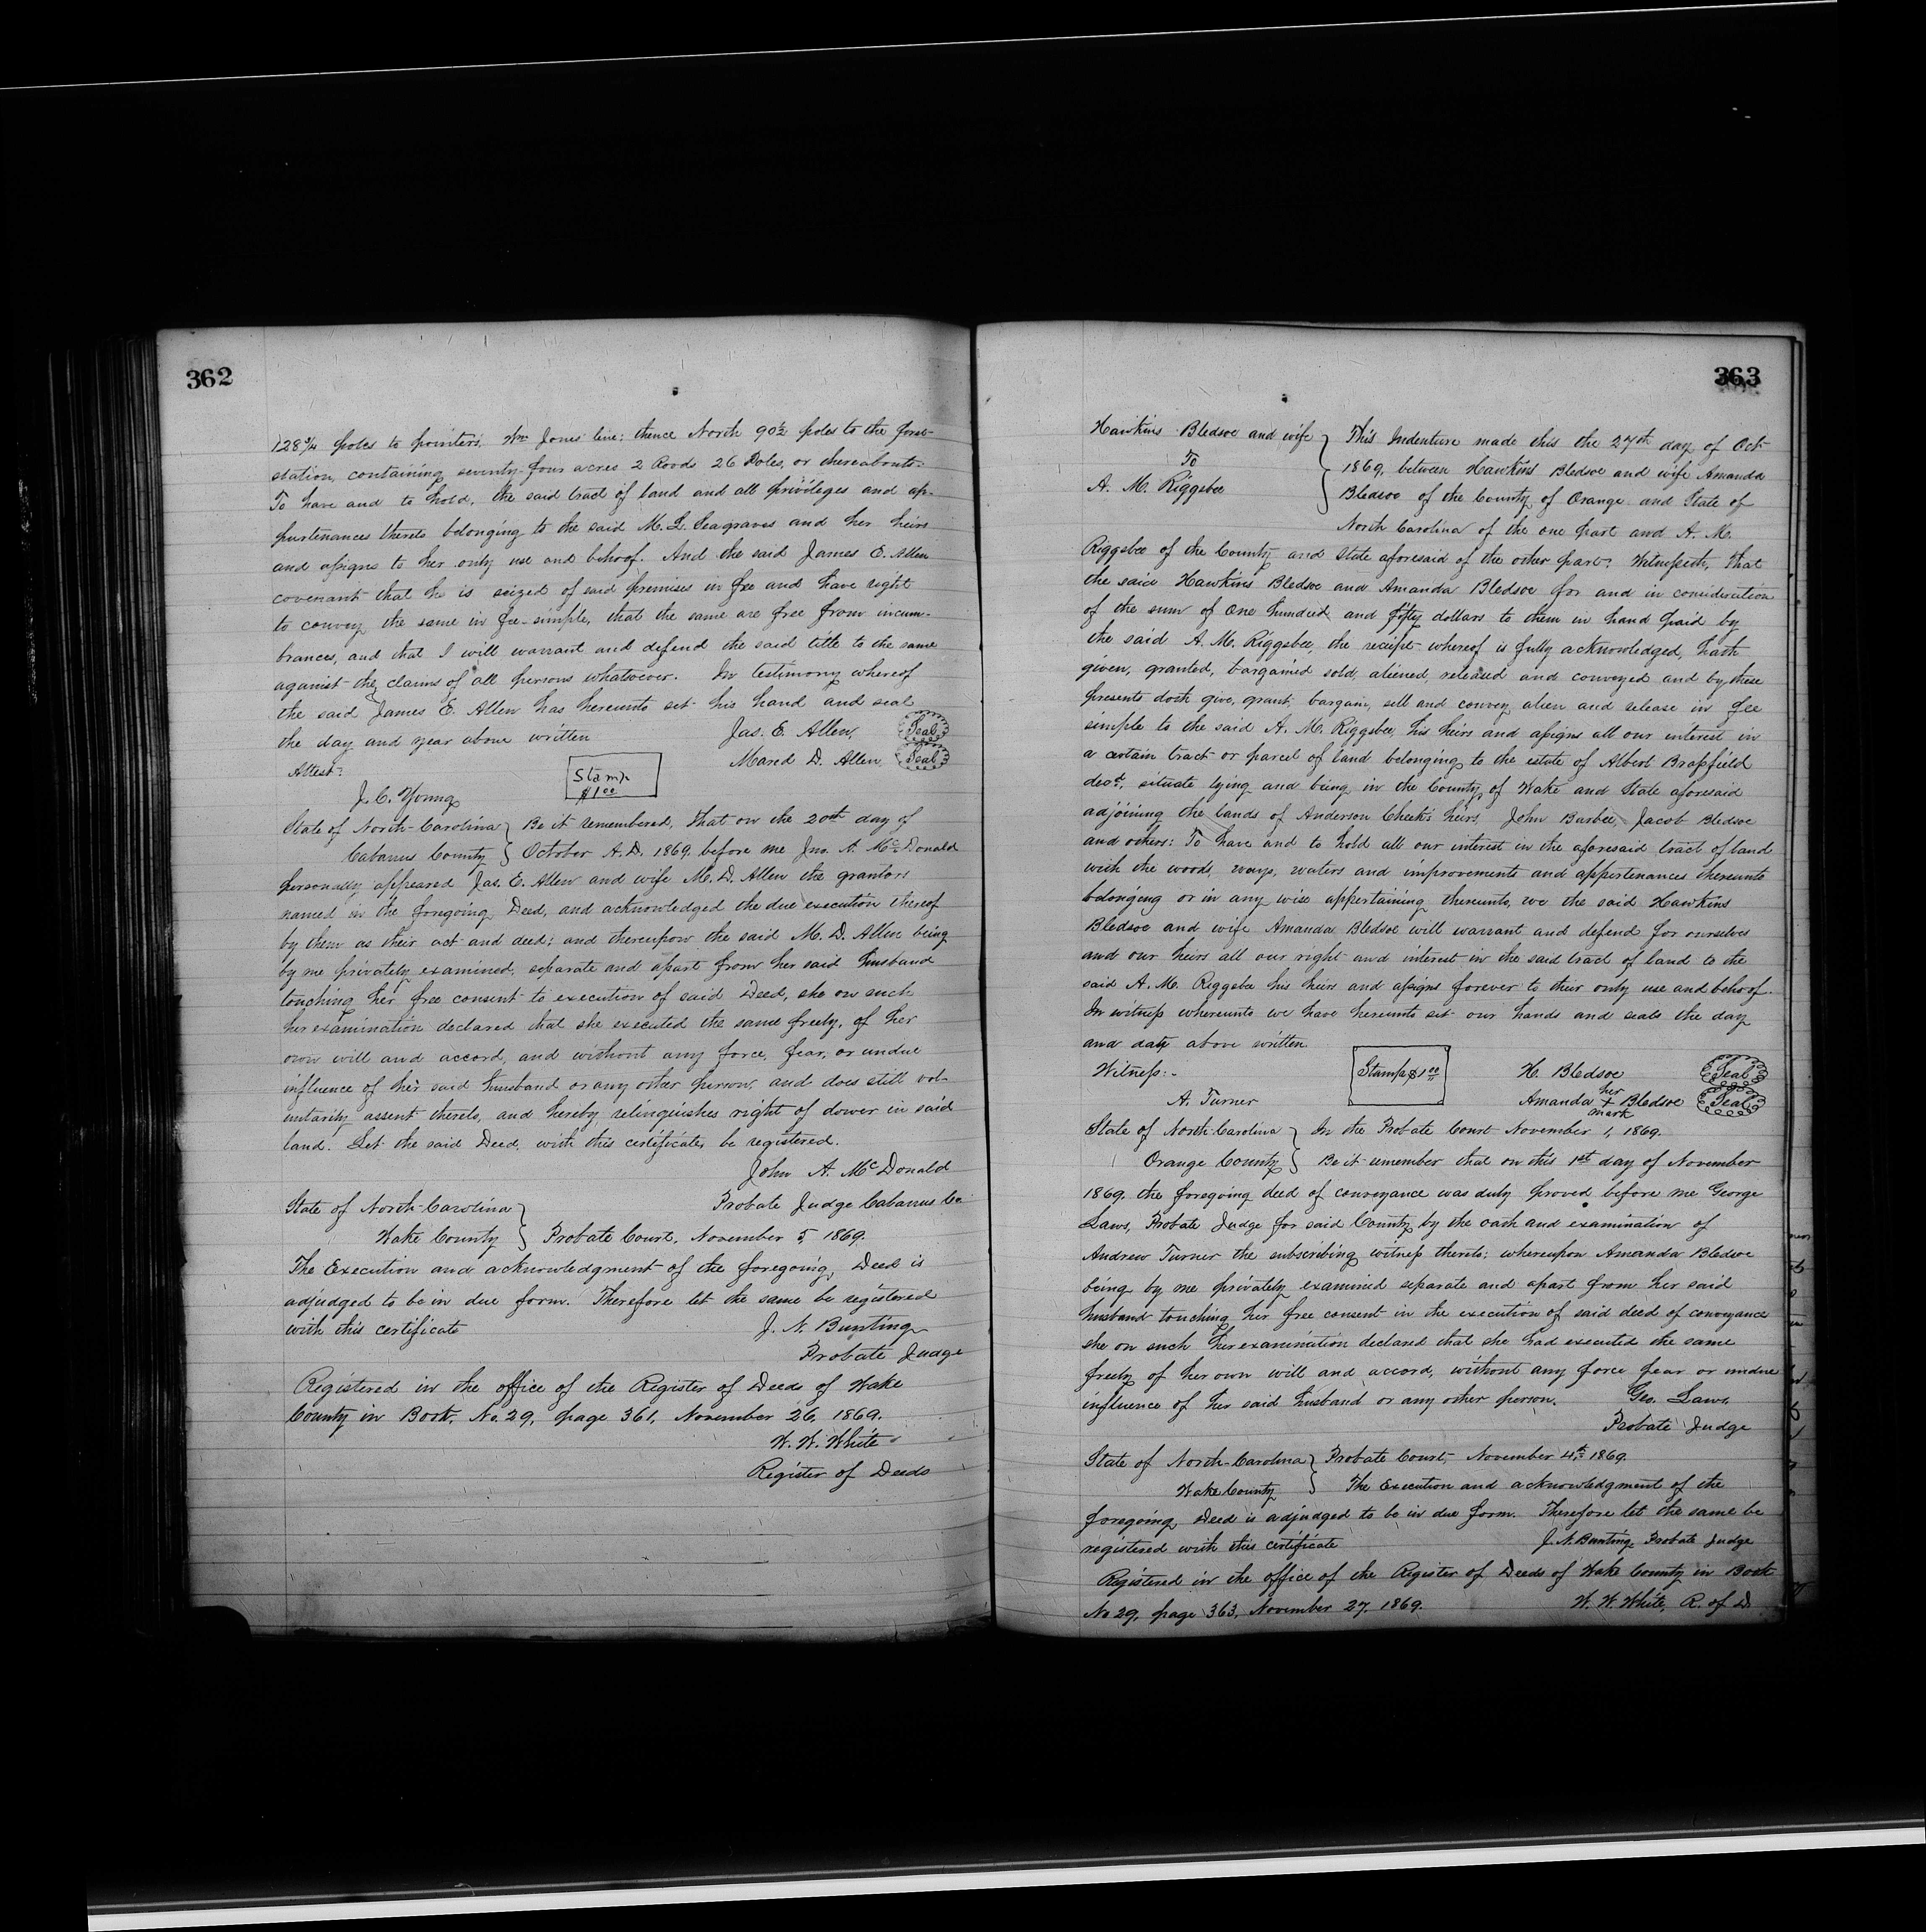 362
128 3/4 poles to pointers, Wm Jones' line; thence North 90 1/2 poles to the first
station, containing seventy-four acres 2 Roods 26 Poles, or thereabouts.
To have and to hold, the said tract of land and all privileges and ap-
purtenances thereto belonging to the said M. L. Seagraves and her heirs
and assigns to her only use and behoof. And the said James E. Allen
covenant that he is seized of said premises in fee and have right
to convey the same in fee-simple, that the same are free from incum-
brances, and that I will warrant and defend the said title to the same
against the claims of all persons whatsoever. In testimony whereof
the said James E. Allen has hereunto set his hand and seal
the day and year above written Jas. E. Allen, Seal
Attest: Stamp $1.00 D. Allen, Seal
J. C. Young
State of North-Carolina } Be it remembered, That on the 20th day of
Cabarrus County } October A.D. 1869. before me Jno. A. McDonald
personally appeared Jas. E. Allen and wife M. D. Allen the grantors
named in the foregoing Deed, and acknowledged the due execution thereof
by them as their act and deed; and thereupon the said M. D. Allen being
by me privately examined, separate and apart from her said husband
touching her free consent to execution of said Deed, she on such
her examination declared that she executed the same freely, of her
own will and accord, and without any force, fear, or undue
influence of her said husband or any other person, and does still vol-
untarily assent thereto, and hereby relinquishes right of dower in said
land. Let the said Deed, with this certificate, be registered.
John A. McDonald
State of North-Carolina } Probate Judge Cabarrus Co.
Wake County } Probate Court, November 5, 1869.
The Execution and acknowledgment of the foregoing Deed is
adjudged to be in due form. Therefore let the same be registered
with this certificate J. N. Bunting
Probate Judge
Registered in the office of the Register of Deeds of Wake
County in Book, No. 29, page 361, November 26, 1869.
W. W. White
Register of Deeds
363
Hawkins Bledsoe and wife } This Indenture made this the 27th day of Oct
To } 1869, between Hawkins Bledsoe and wife Amanda
A. M. Riggsbee } Bledsoe of the County of Orange and State of
North Carolina of the one part and A. M.
Riggsbee of the County and State aforesaid of the other part: Witnesseth, That
the said Hawkins Bledsoe and Amanda Bledsoe for and in consideration
of the sum of One hundred and fifty dollars to them in hand paid by
the said A. M. Riggsbee, the receipt whereof is fully acknowledged, hath
given, granted, bargained sold, aliened, released and conveyed and by these
presents doth give, grant, bargain, sell and convey alien and release in fee
simple to the said A. M. Riggsbee, his heirs and assigns all our interest in
a certain tract or parcel of land belonging to the estate of Albert Brassfield
decd, situate lying and being in the County of Wake and State aforesaid
adjoining the lands of Anderson Cheek's heirs, John Barbee, Jacob Bledsoe
and others: To have and to hold all our interest in the aforesaid tract of land
with the woods, ways, waters and improvements and appertenances thereunto
belonging or in any wise appertaining thereunto, we the said Hawkins
Bledsoe and wife Amanda Bledsoe will warrant and defend for ourselves
and our heirs all our right and interest in the said tract of land to the
said A. M. Riggsbee his heirs and assigns forever to their only use and behoof.
In witness whereunto we have hereunto set our hands and seals the day
and daty above written.
Witness:- Stamp $1.00 H. Bledsoe Seal
A. Turner Amanda her + mark Bledsoe Seal
State of North-Carolina } In the Probate Court November 1, 1869.
Orange County } Be it remember that on this 1st day of November
1869. the foregoing deed of conveyance was duly proved before me George
Laws, Probate Judge for said County by the oath and examination of
Andrew Turner the subscribing witness thereto; whereupon Amanda Bledsoe
being by me privately examined separate and apart from her said
husband touching her free consent in the execution of said deed of conveyance
she on such her examination declared that she had executed the same
freely of her own will and accord, without any force fear or undue
influence of her said husband or any other person. Geo. Laws,
Probate Judge
State of North-Carolina } Probate Court, November 4th 1869.
Wake County } The Execution and acknowledgment of the
foregoing Deed is adjudged to be in due form. Therefore let the same be
registered with this certificate J. N. Bunting Probate Judge
Registered in the office of the Register of Deeds of Wake County in Book
No 29, page 363, November 27, 1869. W. W. White, R. of D.